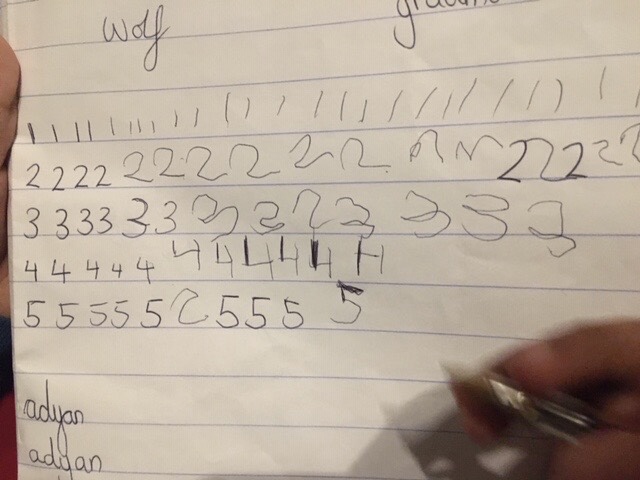 wolf
1 1 1 1 1 1 1 1 1 1 1 1 1 1 1 1 1 1 1 1 1 1 1 1 1
2 2 2 2 2 2 2 2 2 2 2 2 2 2 2
3 3 3 3 3 3 3 3 2 3 3 3 3
4 4 4 4 4 4 4 4 4 4 4
5 5 5 5 5 2 5 5 5 5
adyan
adyan